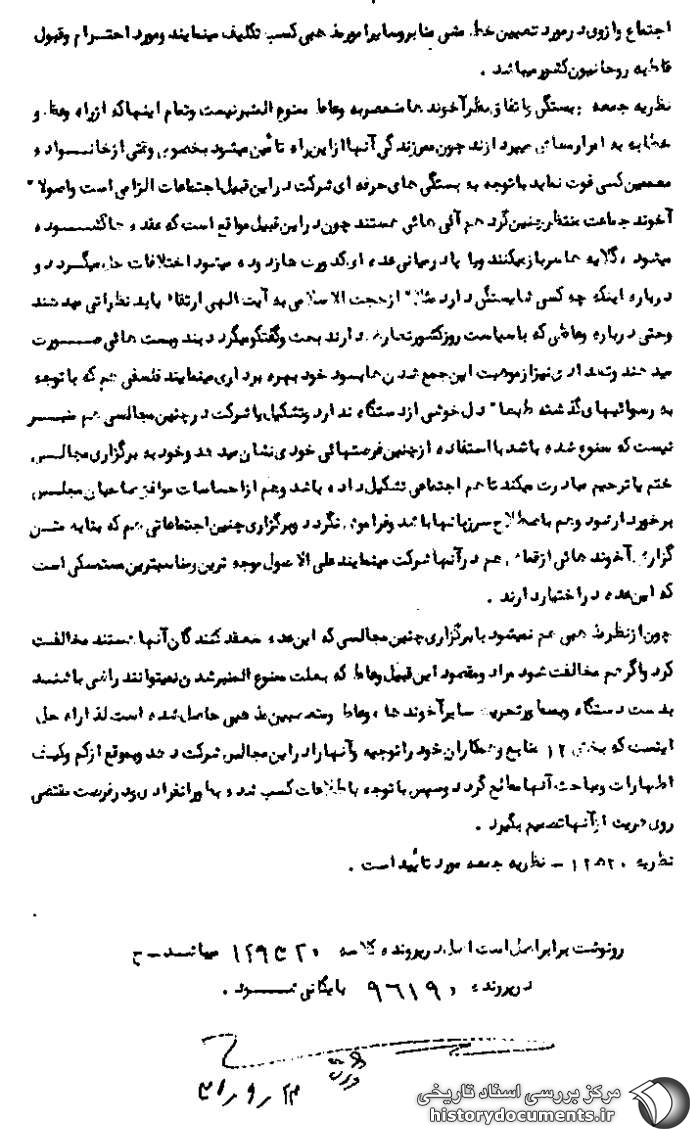 اجتماع و از وی در مورد تعیین خط مشی منابر و سایر امور مذهبی کسب تکلیف مینمایند و مورد احترام و قبول
قاطبه روحانیون کشور میباشد .
نظریه جمعه : بستگی و اتفاق نظر آخوند ها منحصر به وعاظ ممنوع المنبر نیست و تمام اینها که از راه وعظ و
خطابه به امرار معاش میپردازند چون ممر زندگی آنها از این راه تأمین میشود بخصوص وقتی از خانواده
معممین کسی فوت نماید با توجه به بستگی های حرفه ای شرکت در این قبیل اجتماعات الزامی است و اصولا"
آخوند جماعت منتظر چنین گرد هم آئی هائی هستند چون در این قبیل مواقع است که عقده ها گشوده
میشود ، گلایه ها سر باز میکنند و با پا در میانی عده ای کدورت ها زدوده میشود اختلافات حل میگردد و
درباره اینکه چه کسی شایستگی دارد مثلا" از حجت الاسلامی به آیت الهی ارتقاء یابد نظراتی میدهند
و حتی درباره وعاظی که با سیاست روز کشور تعارض دارند بحث و گفتگو میگردد پند و بحث هائی صورت
میدهند و تعدادی نیز از موهبت این جمع شدن ها بسود خود بهره برداری مینمایند فلسفی هم که با توجه
به رسوائیهای گذشته طبعا" دل خوشی از دستگاه ندارد و تشکیل یا شرکت در چنین مجالسی هم
نیست که ممنوع شده باشد با استفاده از چنین فرصتهائی خودی نشان میدهد و خود به برگزاری مجالس
ختم یا ترحیم مبادرت میکند تا هم اجتماعی تشکیل داده باشد و هم از احساسات موافق صاحبان مجلس
برخوردار شود و هم باصطلاح سر زبانها باشد و فراموش نگردد و برگزاری چنین اجتماعاتی هم که بنا به متن
گزارش آخوند هائی از قماش هم در آنها شرکت مینمایند علی الاصول موجه ترین و مناسبترین مستمسکی است
که این عده در اختیار دارند .
چون از نظر مذهبی هم نمیشود با برگزاری چنین مجالسی که این عده منعقد کنندگان آنها هستند مخالفت
کرد و اگر هم مخالفت شود مراد و مقصود این قبیل وعاظ که بعلت ممنوع المنبر شدن نمیتوانند راضی باشند
بدست دستگاه و بمنظور تحریک سایر آخوند ها ، وعاظ و متعصبین مذهبی حاصل شده است لذا راه حل
اینست که بخش ۱۲ منابع و همکاران خود را توجیه و آنها را در این مجالس شرکت دهد و بموقع از کم و کیف
اظهارات و مباحث آنها مطلع گردد و سپس با توجه باطلاعات کسب شده و بطور انفرادی و در فرصت مقتضی
روی هریک از آنها تصمیم بگیرد .
نظریه ۲۰ ه ۱۲ – نظریه جمعه مورد تأیید است .
رونوشت برابر اصل است اصل در پرونده کلاسه ۱۲۹۳۲۰ میباشد – ح
در پرونده ۹۶۱۹۰ بایگانی شود .
مرکز بررسی اسناد تاریخی
historydocuments.ir